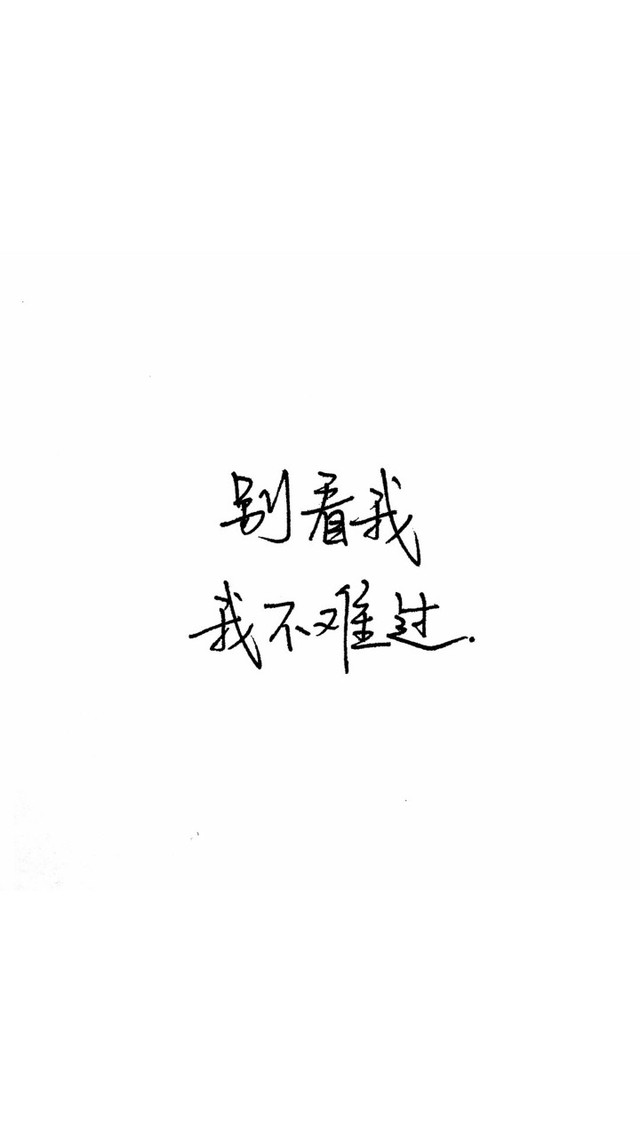 别看我
我不难过.